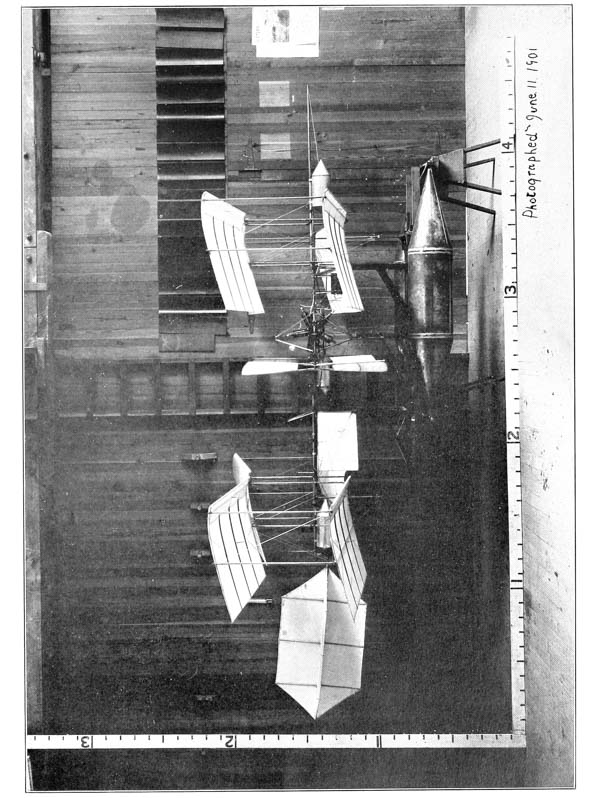 Photographed~ June 11. 1901
1 2 3 4
1 2 3